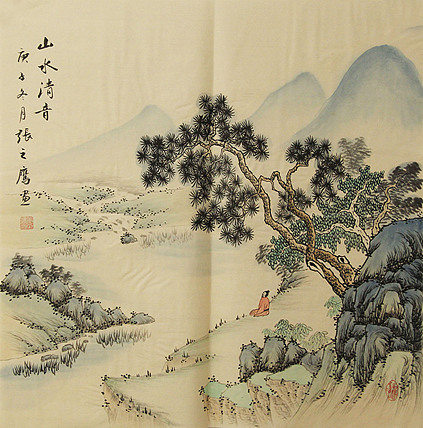 山水清音
庚子冬月張之鹰画